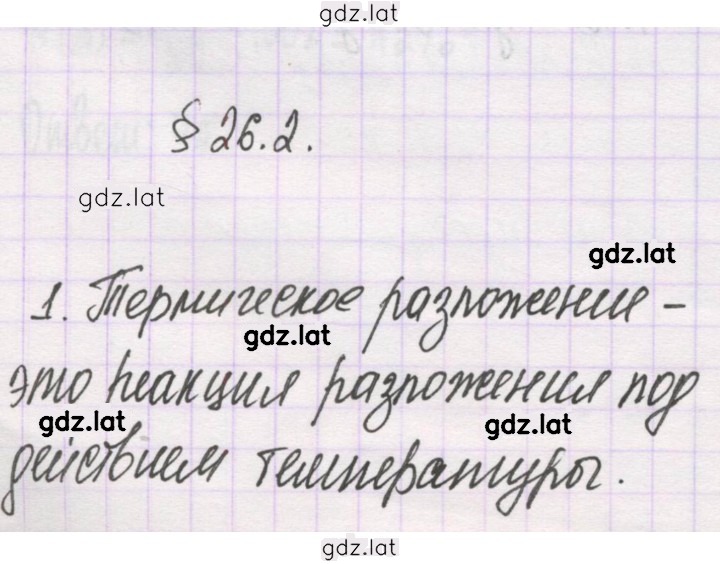 gdz.lat
§ 26.2.
gdz.lat
gdz.lat
1. Термическое разложение -
gdz.lat
это реакция разложения под
gdz.lat
gdz.lat
действием температуры.
gdz.lat